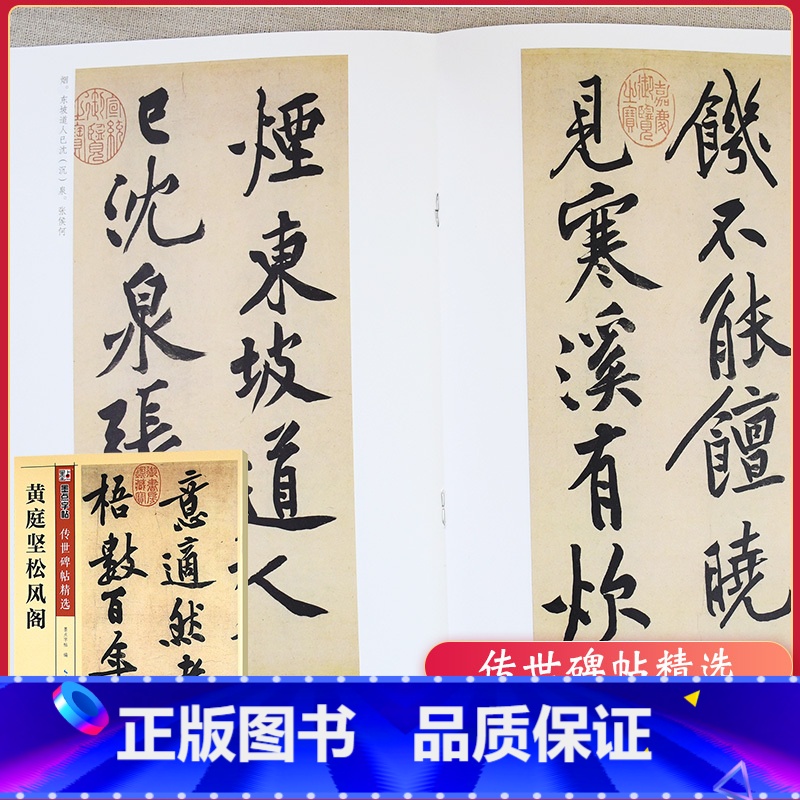 饑不能饘曉
見寒溪有炊
嘉慶御覽之寶
煙東坡道人
已沈泉張
宣統御覽之寶
烟。东坡道人已沈（沉）泉。张侯何
意適然老
梧數百年
墨点字帖
传世碑帖精选
墨点字帖 编
黄庭坚松风阁
传世碑帖精选
正版图书 品质保证